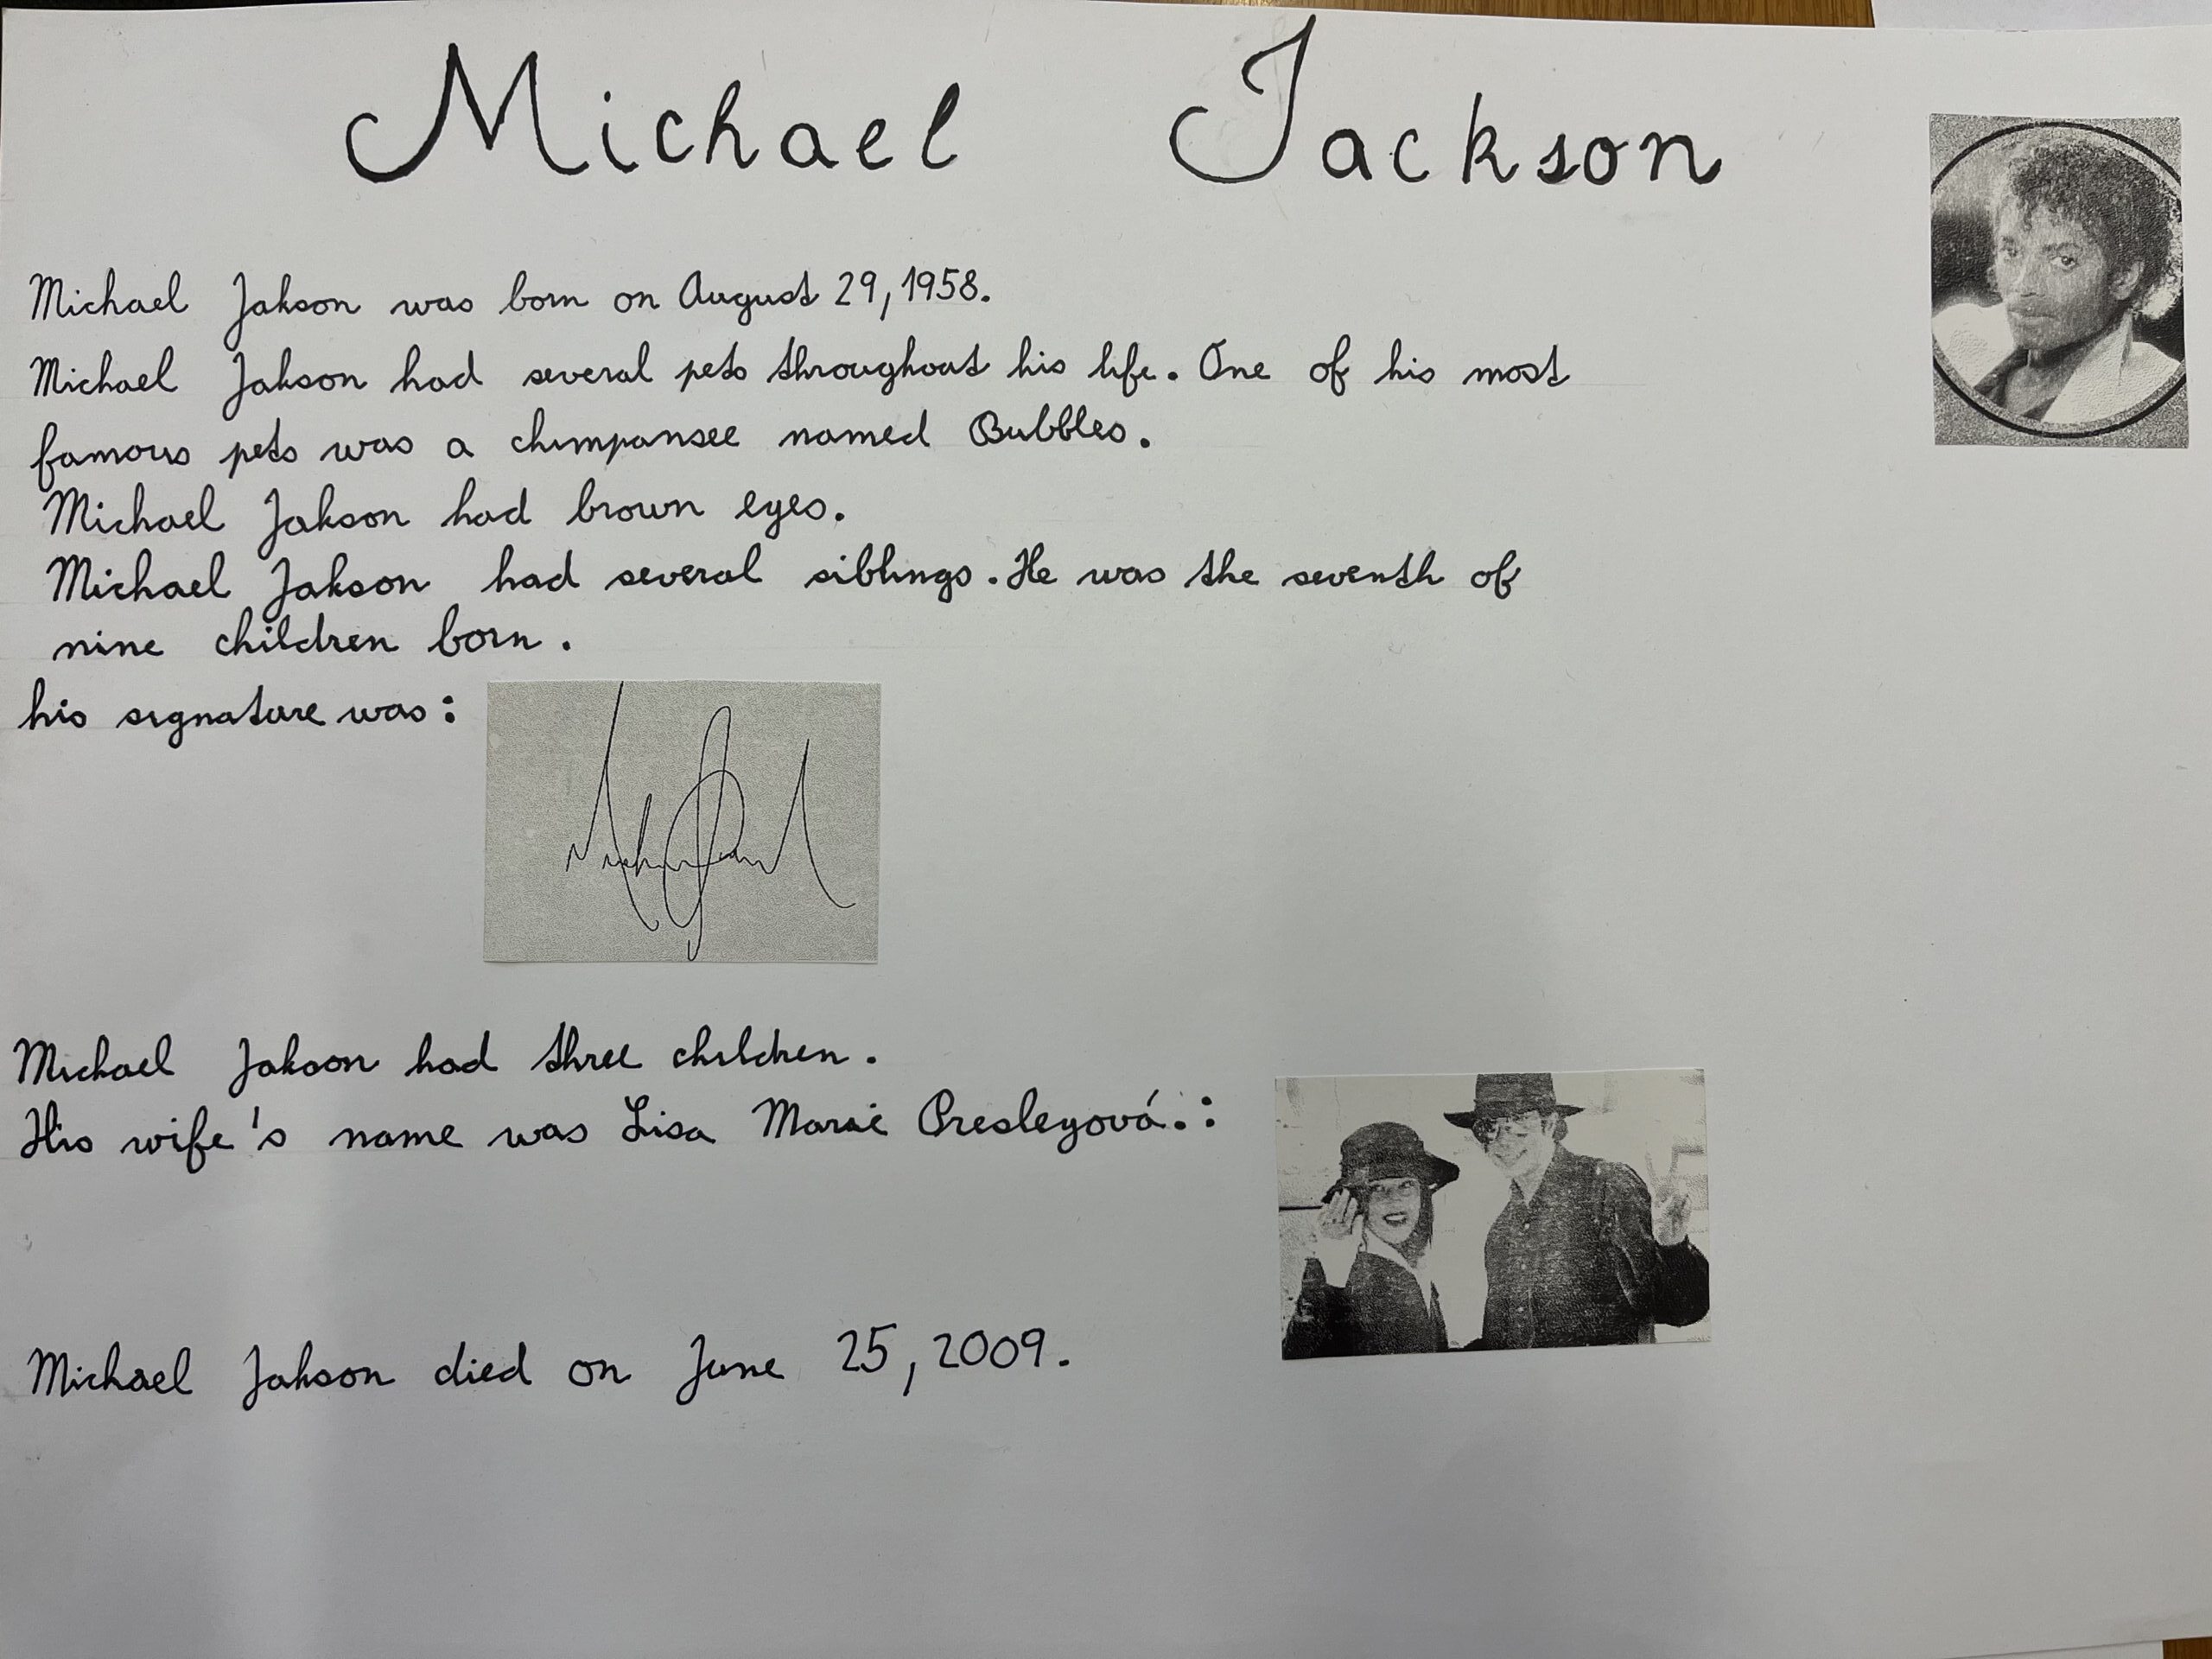 Michael Jackson
Michael Jakson was born on August 29, 1958.
Michael Jakson had several pets throughout his life. One of his most
famous pets was a chimpansee named Bubbles.
Michael Jakson had brown eyes.
Michael Jakson had several siblings. He was the seventh of
nine children born.
his signature was:
Michael Jakson had three children.
His wife's name was Lisa Marie Presleyová.:
Michael Jakson died on June 25, 2009.